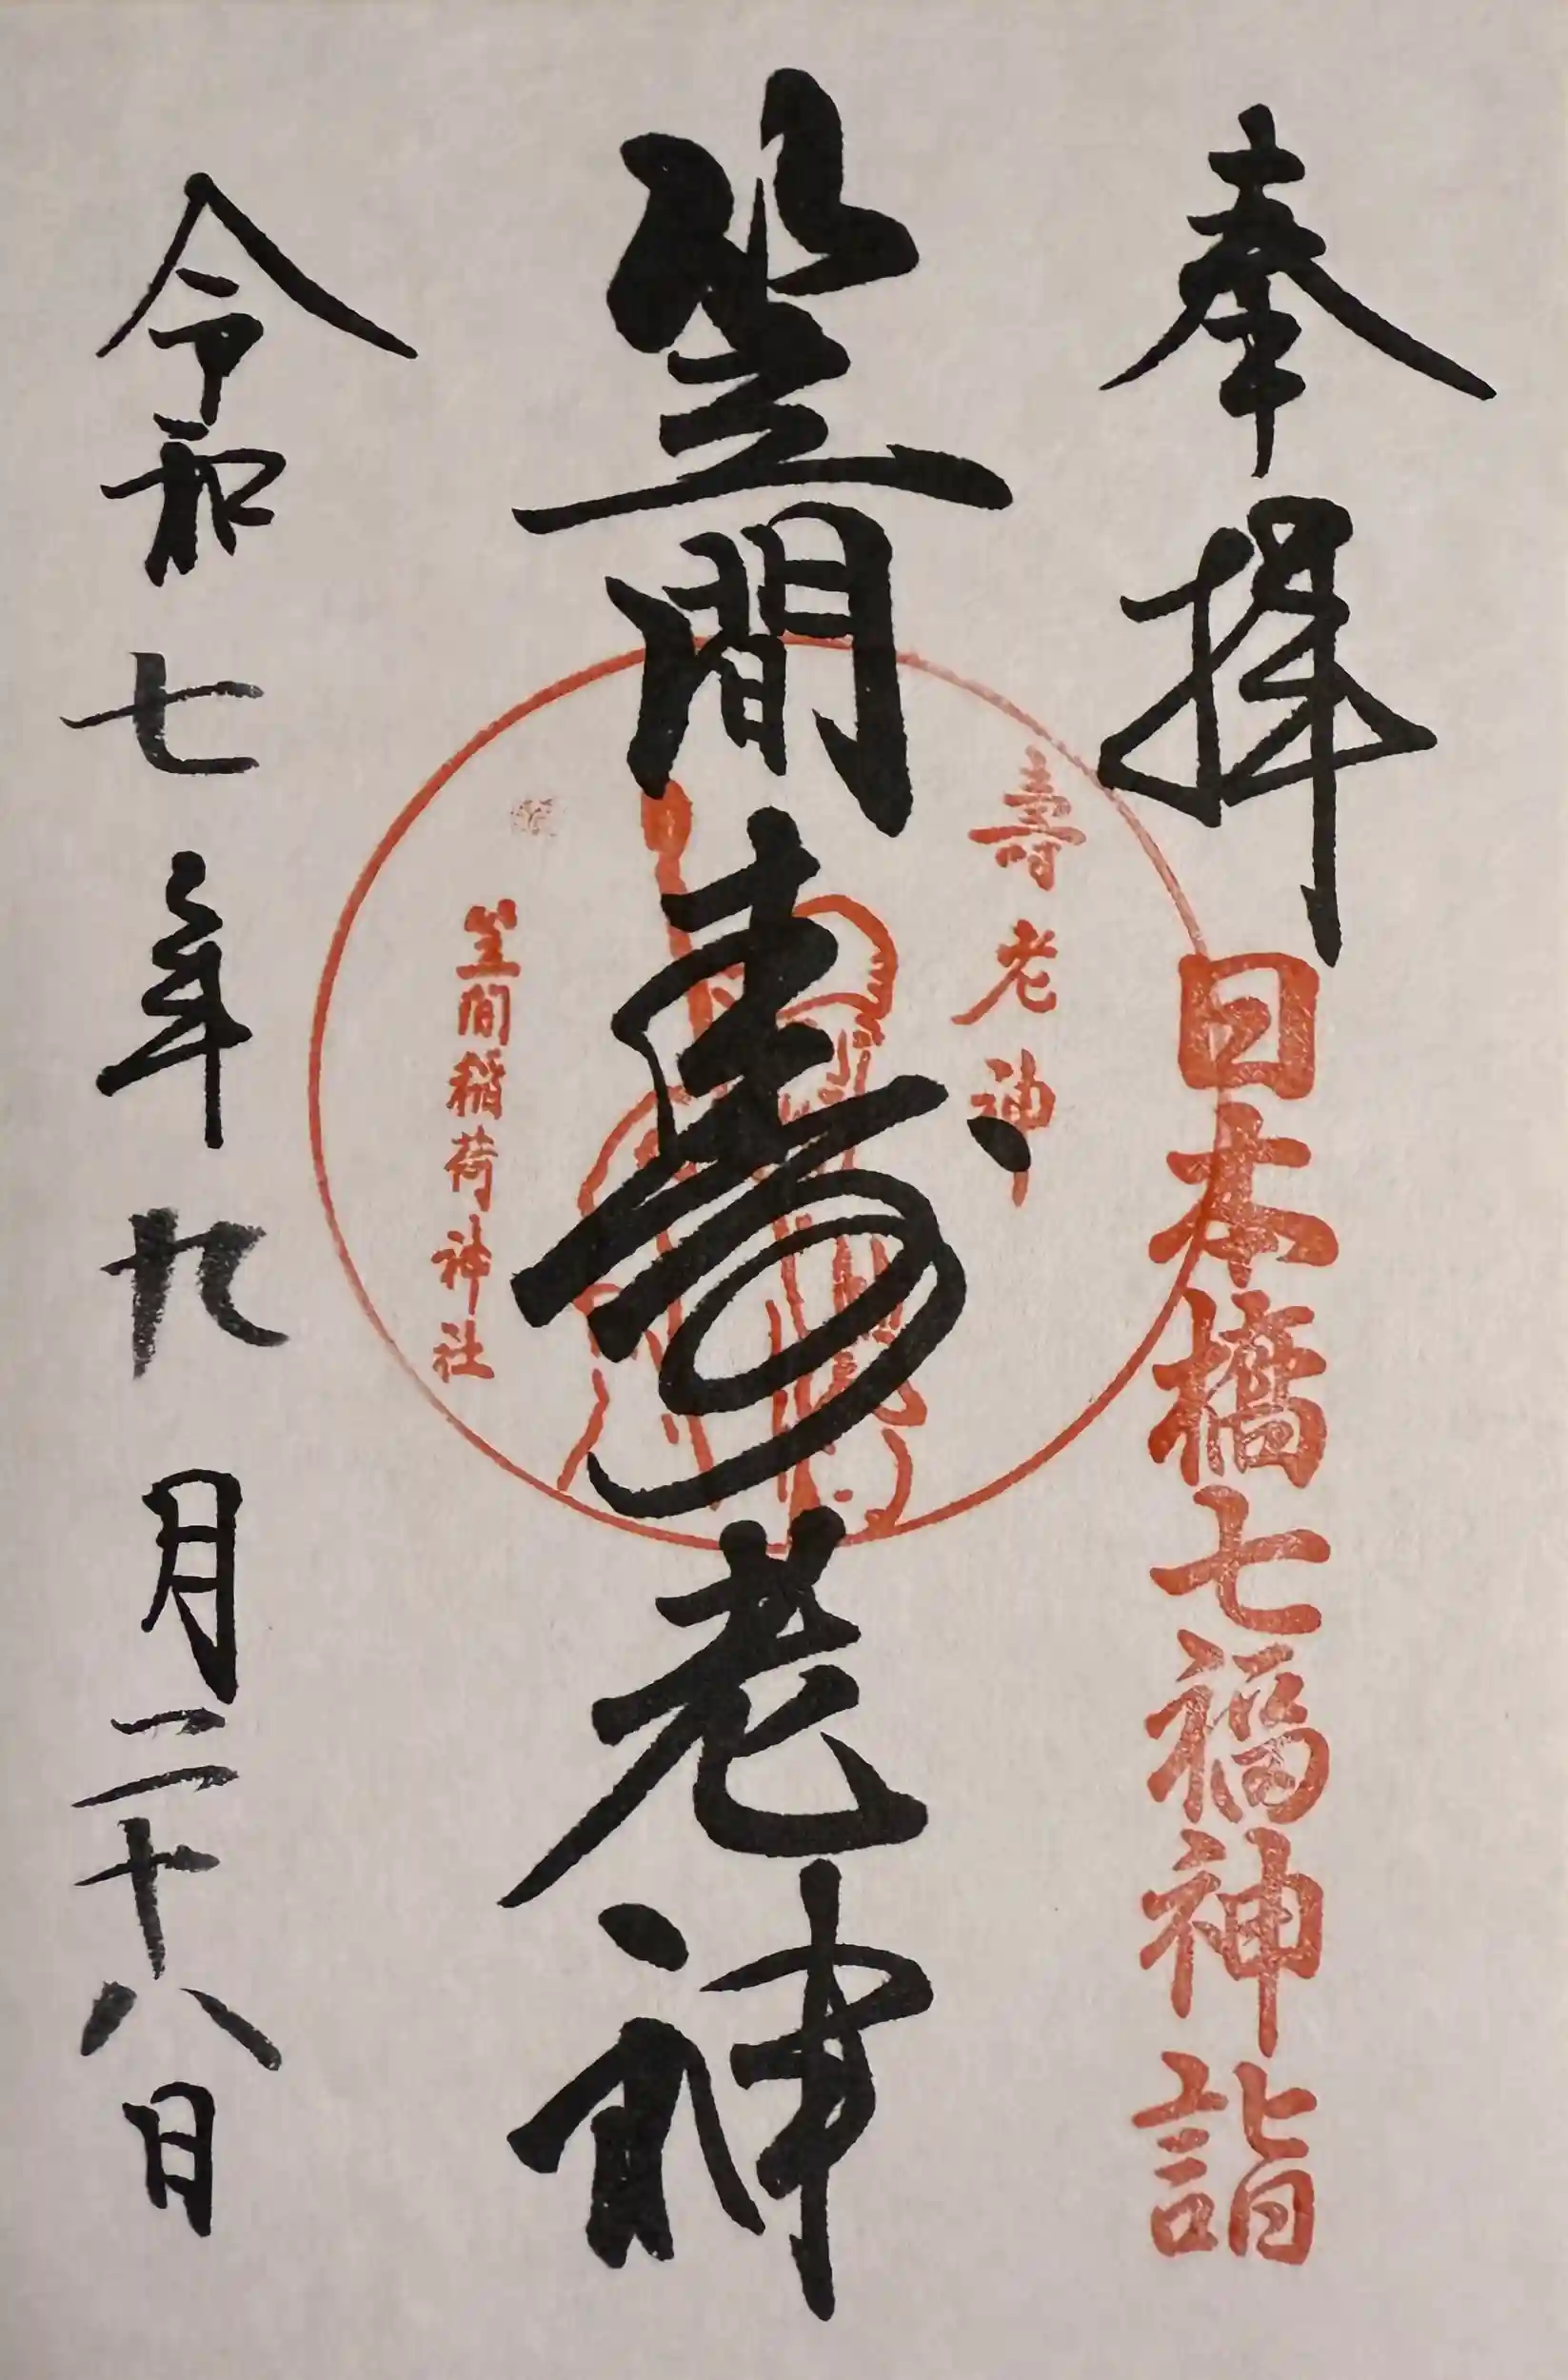 奉拝
日本橋七福神詣
壽老神
笠間寿老神
笠間稲荷神社
令和七年九月二十八日